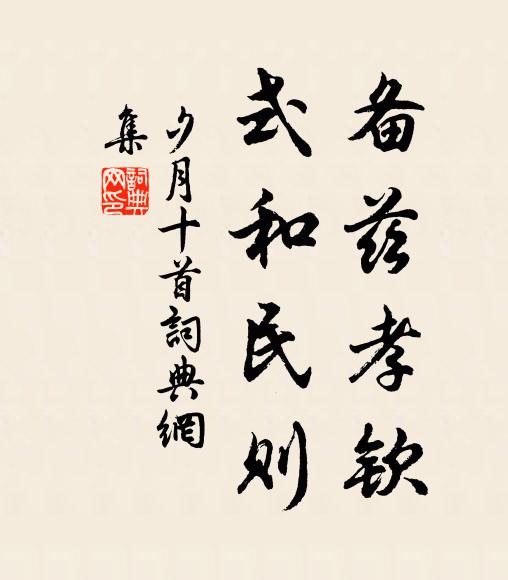 备兹孝钦
式和民则
夕月十首詞典網
集
詞典
网印